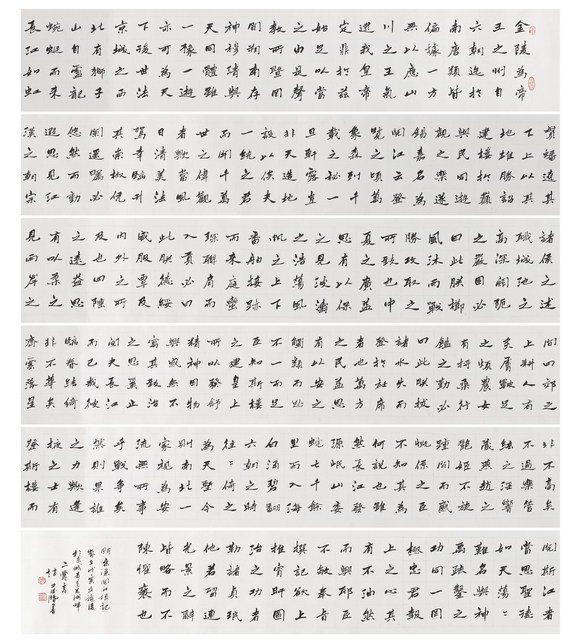 金陵為帝
王之州自
六朝迄於
南唐類皆
偏據一方
無以應山
川之王氣
逮我皇帝
定鼎於茲
始足以當
之由是聲
教所暨罔
間朔南存
神穆清與
天同體雖
一豫一遊
亦可為天
下後世法
京城之西
北有獅子
山自盧龍
蜿蜒而來
長江如虹
貫蟠遶其
下上以其
地雄勝詔
建樓於巔
與民同遊
觀之樂遂
錫嘉名為
閱江云登
覽之頃萬
象森列千
載之秘一
旦軒露豈
非天造地
設以俟大
一統之君
而開千萬
世之偉觀
者歟當風
日清美法
駕幸臨升
其崇椒憑
闌遙矚必
悠然而動
遐思見江
漢之朝宗
諸侯之述
職城池之
高深關阨
之嚴固必
曰此朕櫛
風沐雨戰
勝攻取之
所致也中
夏之廣益
思有以保
之見波濤
之浩蕩風
帆之上下
番舶接跡
而來庭蠻
琛聯肩而
入貢必曰
此朕德綏
威服覃及
內外之所
及也四陲
之遠益思
有以柔之
見兩岸之
間四郊之
上耕人有
炙膚皸足
之煩農女
有捋桑行
饁之勤必
曰此朕拔
諸水火而
登於衽席
者也萬方
之民益思
有以安之
觸類而思
不一而足
臣知斯樓
之建皇上
所以發舒
精神因物
興感無不
寓其致治
之思奚止
閱夫長江
而已哉彼
臨春結綺
非不華矣
齊雲落星
非不高矣
不過樂管
絃之淫響
藏燕趙之
艷姬不旋
踵間而感
慨係之臣
不知其為
何說也雖
然長江發
源岷山委
蛇七千餘
里而入海
白湧碧翻
六朝之時
往往倚之
為天塹今
則南北一
家視為安
流無所事
乎戰爭矣
然則果誰
之力歟逢
掖之士有
登斯樓而
閱斯江者
當思聖德
如天蕩蕩
難名與神
禹疏鑿之
功同一罔
極忠君報
上之心其
有不油然
而興耶臣
不敏奉旨
撰記欲上
推宵旰圖
治之功者
勒諸貞珉
他若留連
光景之辭
皆略而不
陳懼褻也
明宋濂閱江樓記